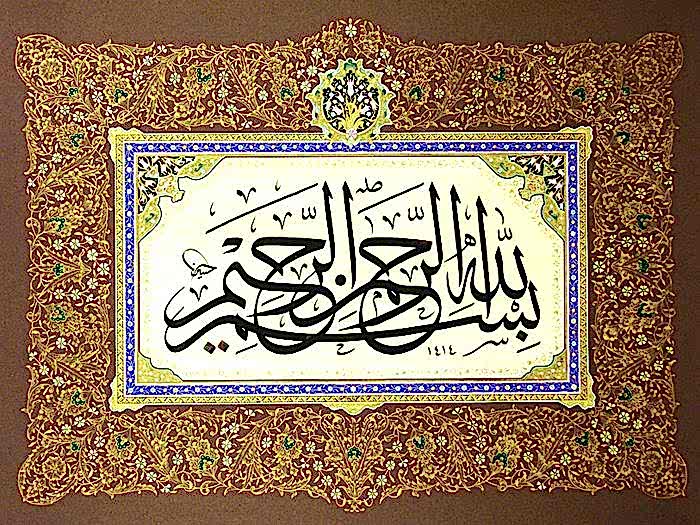 بِسْمِ اللهِ الرَّحْمٰنِ الرَّحِيمِ
١٤١٤